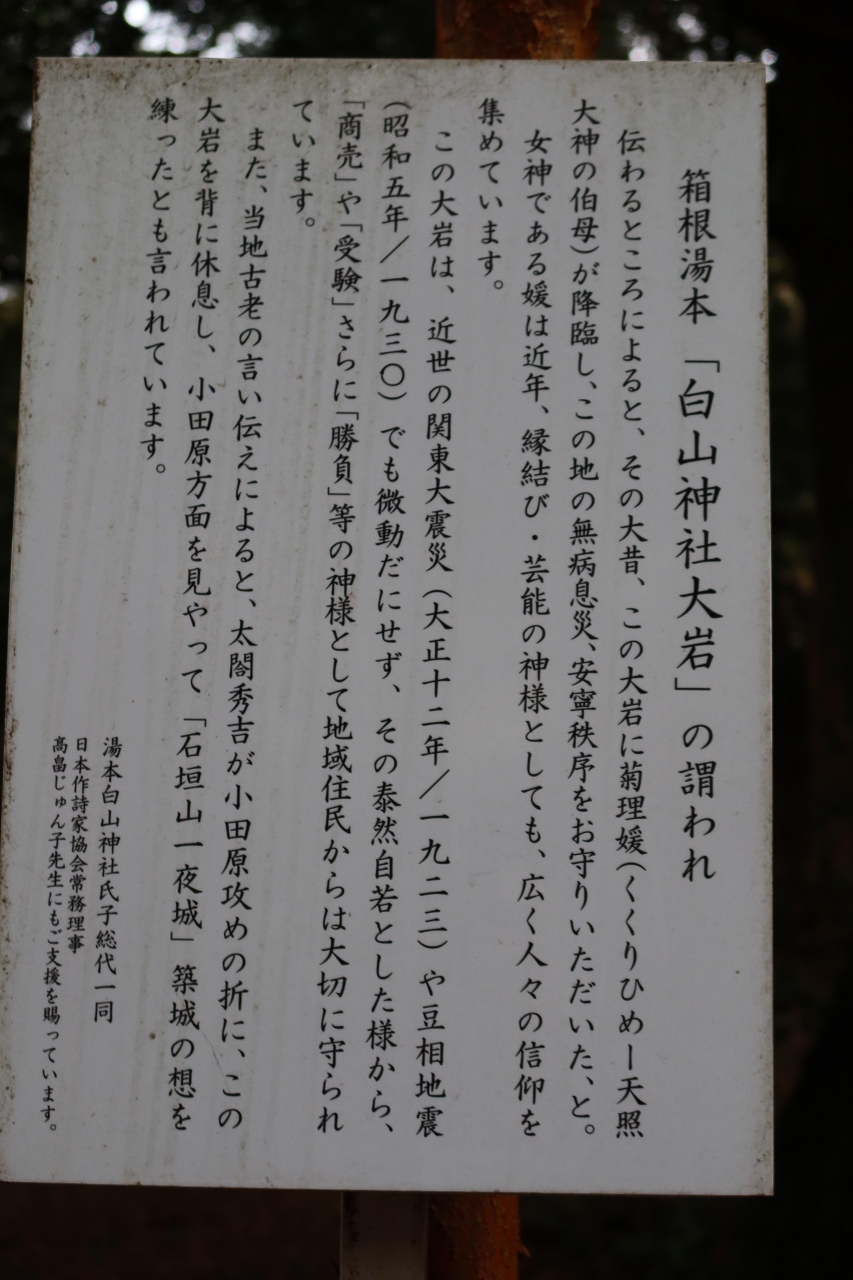 箱根湯本「白山神社大岩」の謂われ
伝わるところによると、その大昔、この大岩に菊理媛(くくりひめー天照
大神の伯母)が降臨し、この地の無病息災、安寧秩序をお守りいただいた、と。
女神である媛は近年、縁結び・芸能の神様としても、広く人々の信仰を
集めています。
この大岩は、近世の関東大震災(大正十二年/一九二三)や豆相地震
(昭和五年/一九三〇)でも微動だにせず、その泰然自若とした様から、
「商売」や「受験」さらに「勝負」等の神様として地域住民からは大切に守られ
ています。
また、当地古老の言い伝えによると、太閤秀吉が小田原攻めの折に、この
大岩を背に休息し、小田原方面を見やって「石垣山一夜城」築城の想を
練ったとも言われています。
湯本白山神社氏子総代一同
日本作詩家協会常務理事
高畠じゅん子先生にもご支援を賜っています。